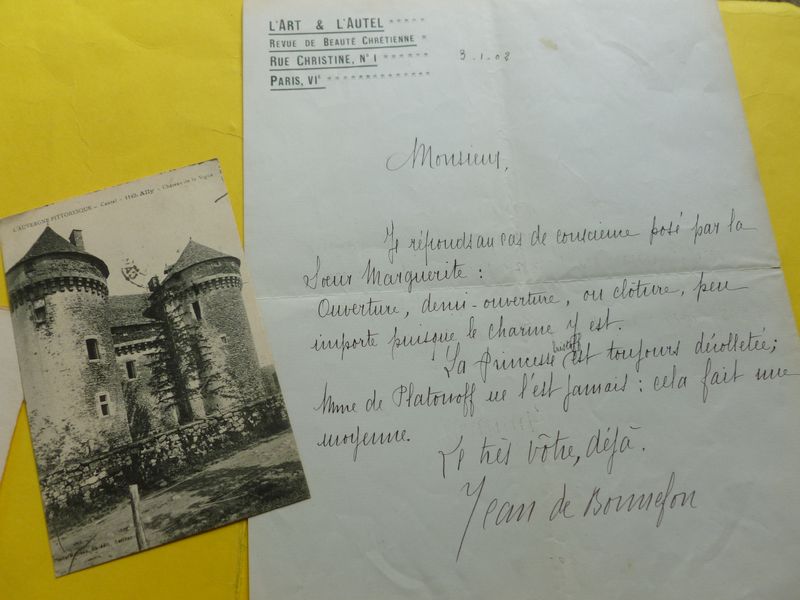 L'ART & L'AUTEL *****
REVUE DE BEAUTÉ CHRÉTIENNE *
RUE CHRISTINE, N° 1 ******
PARIS, VIe **************
3.1.08
Monsieur,
Je réponds au cas de conscience posé par la
Soeur Marguerite :
Ouverture, demi-ouverture, ou clôture, peu
importe puisque le charme y est.
La Princesse est toujours décolletée ;
Mme de Platonoff ne l'est jamais : cela fait une
moyenne.
Le très vôtre, déjà.
Jean de Bonnefon
L'AUVERGNE PITTORESQUE - Cantal - Ally - Château de la Vigne